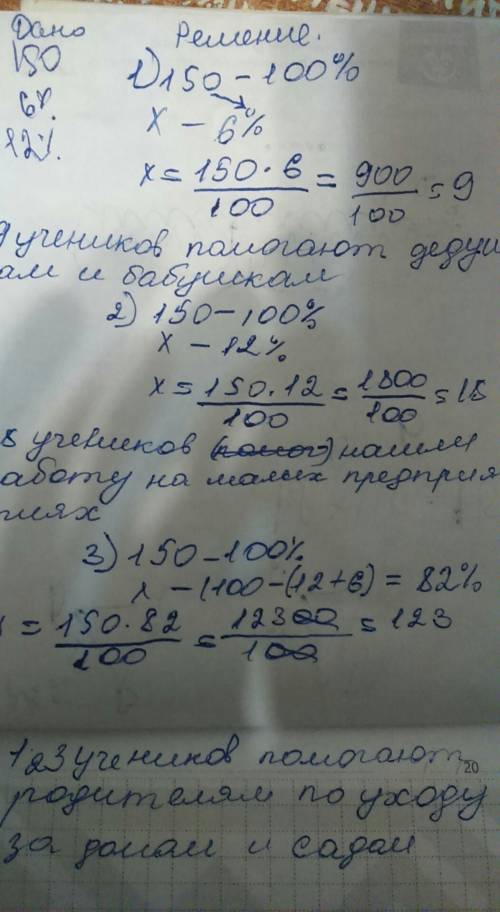 Дано Решение.
150 1) 150 - 100%
6%. x - 6%
12%. x = 150 · 6 / 100 = 900 / 100 = 9
9 учеников помогают дедуш
ам и бабушкам
2) 150 - 100%
x - 12%
x = 150 . 12 / 100 = 1800 / 100 = 18
8 учеников нашли
аботу на малых предприя
тиях
3) 150 - 100%
x - (100 - (12 + 6) = 82%
x = 150 . 82 / 100 = 12300 / 100 = 123
123 учеников помогают
20
родителям по уходу
за домом и садом